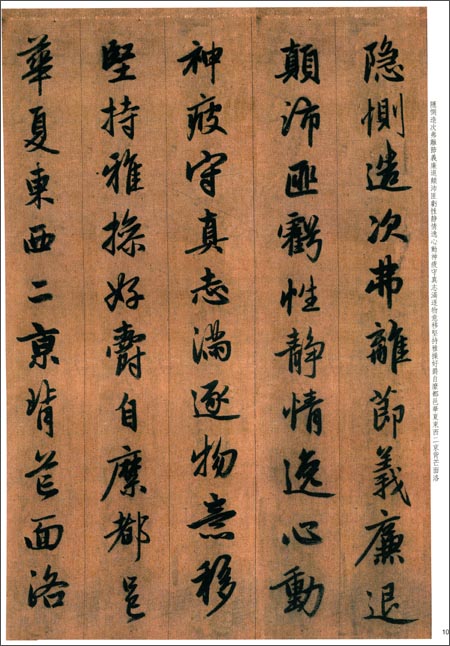 隱惻造次弗離節義廉退顛沛匪虧性靜情逸心動神疲守真志滿逐物意移堅持雅操好爵自縻都邑華夏東西二京背芒面洛
隐惻造次弗離節義廉退
顛沛匪虧性靜情逸心動
神疲守真志滿逐物意移
堅持雅操好爵自縻都邑
華夏東西二京背芒面洛
10